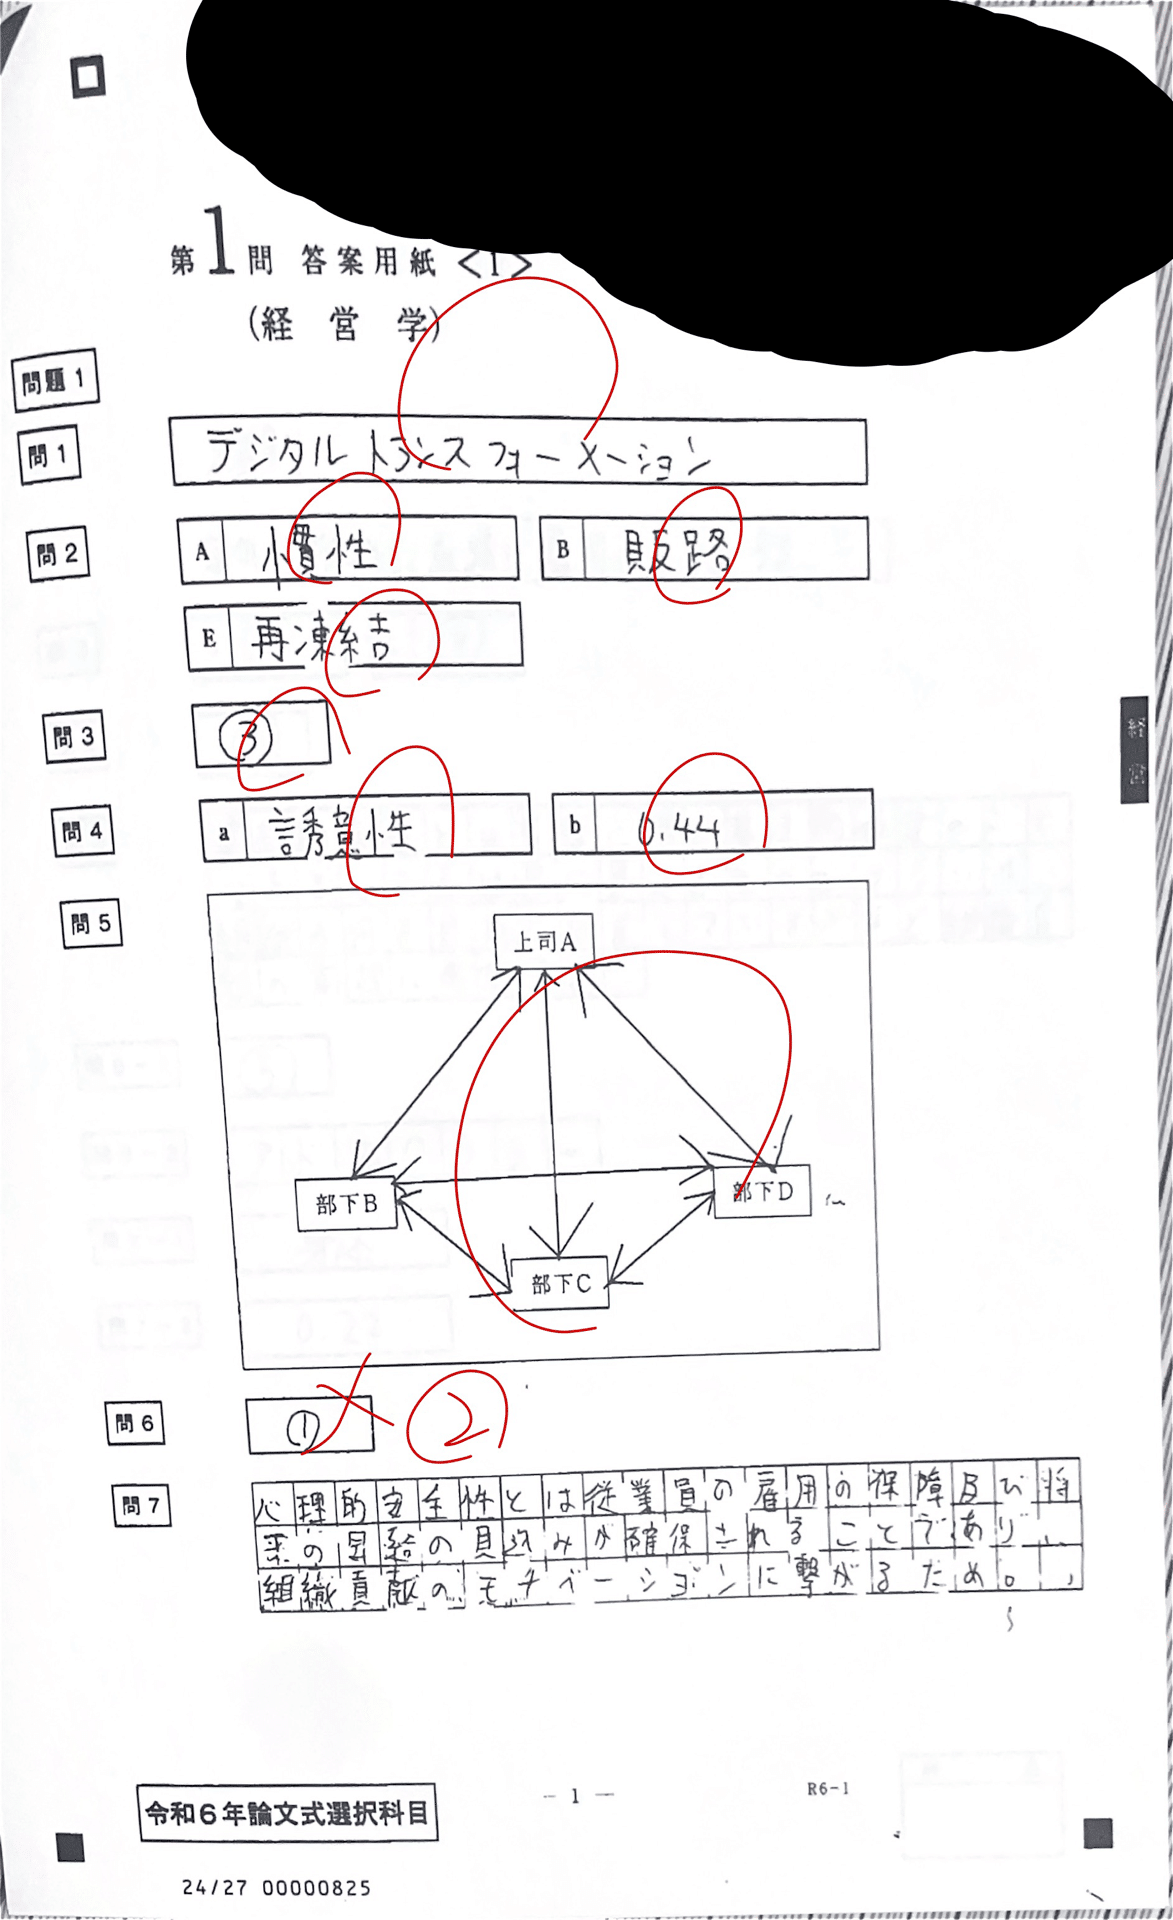 第1問 答案用紙<1>
(経営学)
問題1
問1 デジタルトランスフォーメーション
問2 A 慣性 B 販路
E 再凍結
問3 ③
問4 a 誘意性 b 0.44
問5
上司A
部下B
部下D
部下C
問6 ① ②
問7 心理的安全性とは従業員の雇用の保障及び将
来の昇給の見込みが確保されることであり、
組織貢献のモチベーションに繋がるため。
経営
令和6年論文式選択科目
— 1 —
R6-1
24/27 00000825